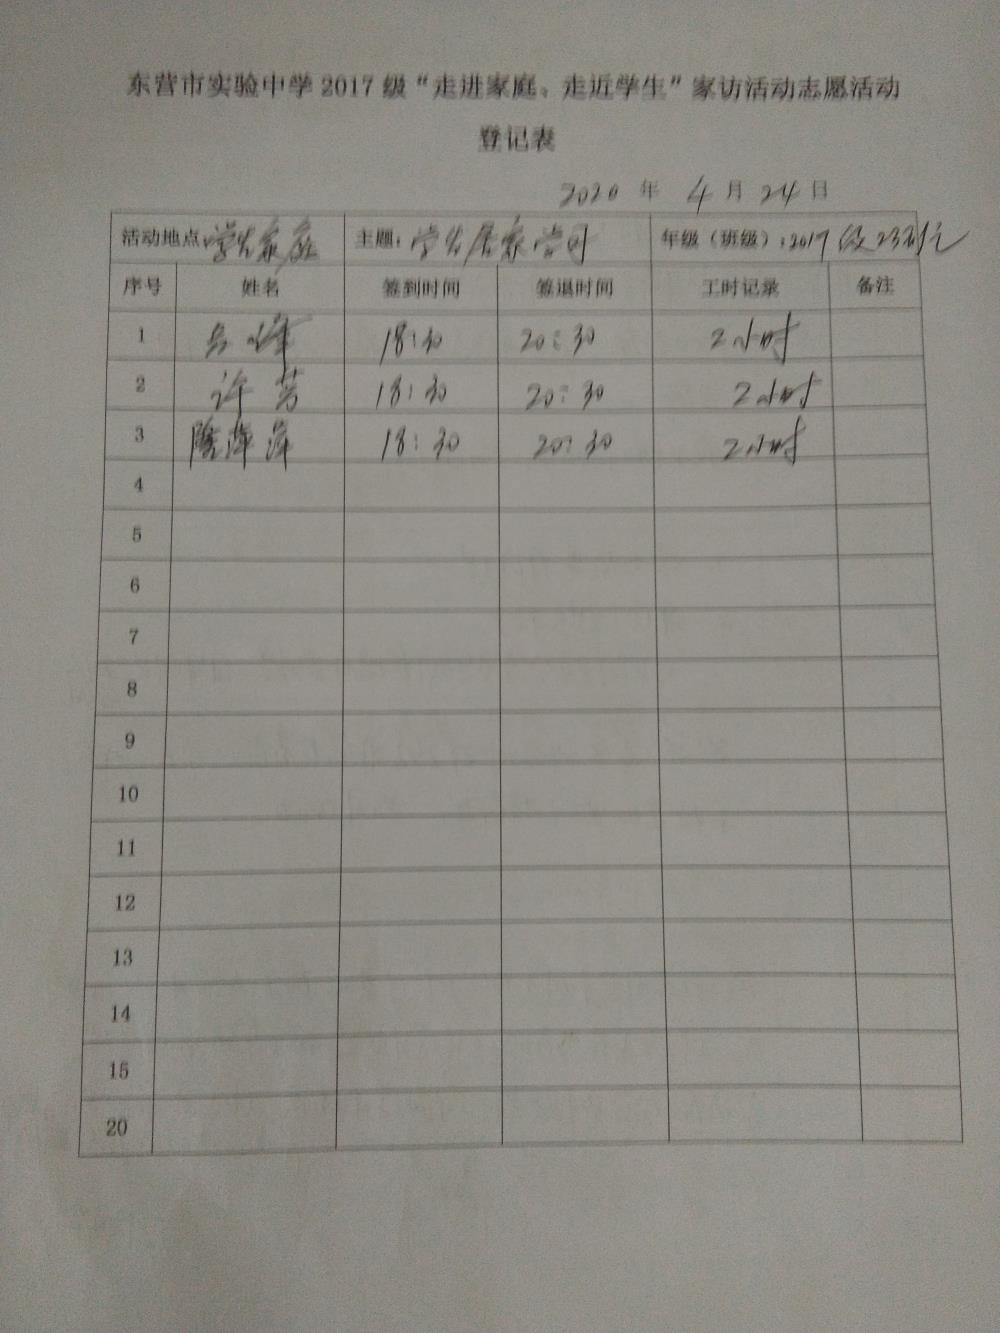 东营市实验中学 2017 级“走进家庭、走近学生”家访活动志愿活动
登记表
2020 年 4 月 24 日
活动地点：学生家庭 主题：学生居家学习 年级（班级）：2017级23班
序号 姓名 签到时间 签退时间 工时记录 备注
1 18:30 20:30 2小时
2 许芳 18:30 20:30 2小时
3 萍萍 18:30 20:30 2小时
4
5
6
7
8
9
10
11
12
13
14
15
20